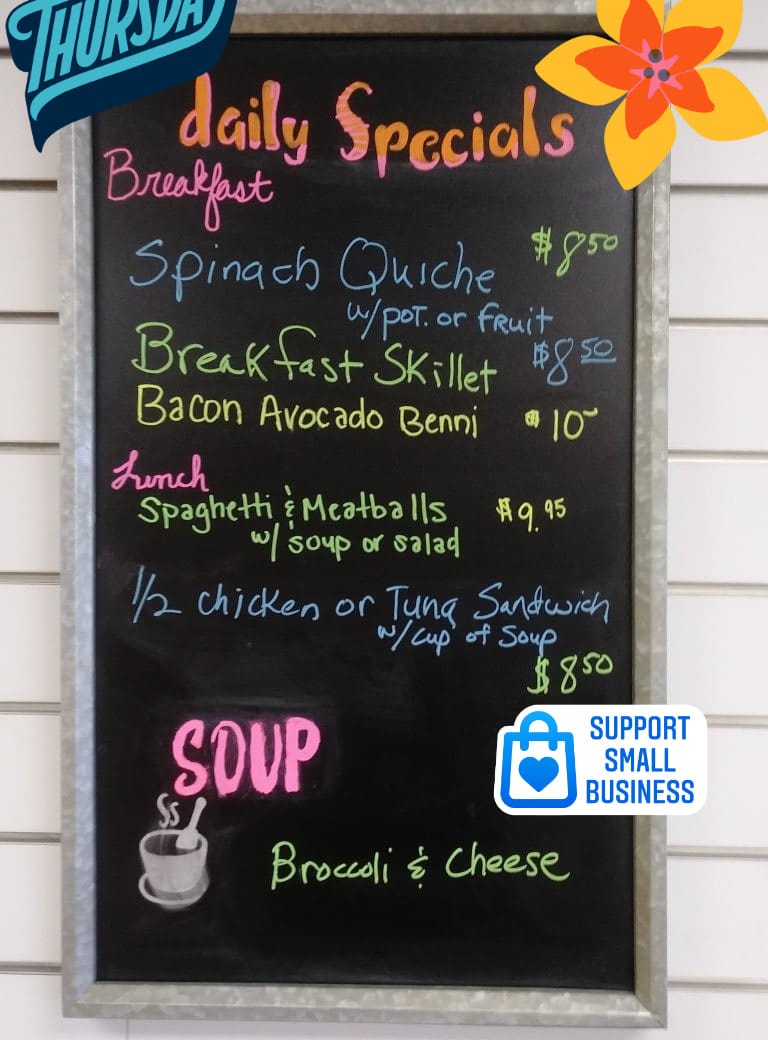 THURSDAY
daily Specials
Breakfast
Spinach Quiche $8 50
w/ POT. or FRUIT
Breakfast Skillet $8 50
Bacon Avocado Benni $10~
Lunch
Spaghetti & Meatballs $9.95
w/ soup or salad
1/2 chicken or Tuna Sandwich
w/ cup of Soup
$8 50
SOUP
Broccoli & Cheese
SUPPORT
SMALL
BUSINESS